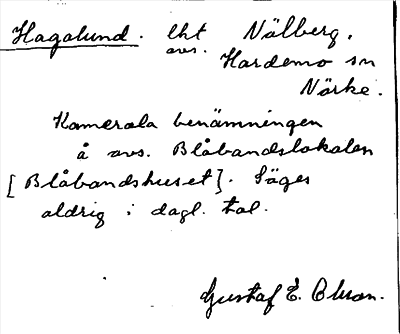 Hagalund. lht Nälberg,
avs. Hardemo sn
Närke.
Kamerala benämningen
å avs. Blåbandslokalen
[Blåbandshuset]. Säges
aldrig i dagl. tal.
Gustaf E. Olsson.